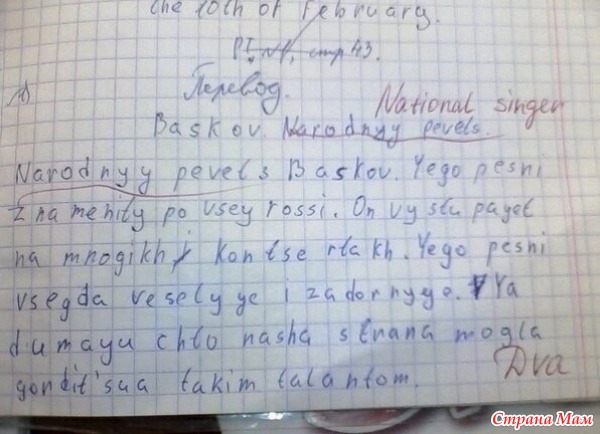 the 10th of February.
PI, №1, стр 43.
1)
Перевод.
National singer
Baskov. Narodnyy pevets.
Narodnyy pevets Baskov. Yego pesni
znamenity po vsey rossi. On vystupayet
na mnogikh kontsertakh. Yego pesni
vsegda veselyye i zadornyye. Ya
dumayu chto nasha strana mogla
gordit'sua takim talantom.
Dva
Страна Мам